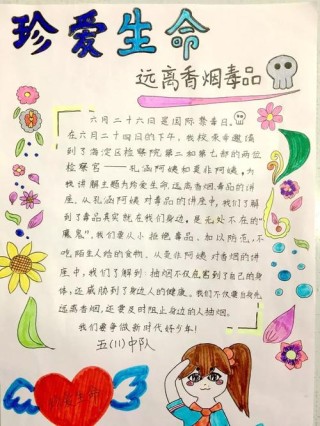 珍爱生命
远离香烟毒品
六月二十六日是国际禁毒日。
在六月二十四日的下午，我校荣幸邀请
到了海淀区检察院第二和第七部的两位
检察官——孔涵阿姨和是非阿姨，为
我们讲解主题为珍爱生命远离香烟毒品的讲
座。从孔涵阿姨对毒品的讲座中，我们了解
到了毒品真实就在我们身边，是无处不在的"
魔鬼"，我们要从小拒绝毒品，加以防范，不
吃陌生人给的食物。从是非阿姨对香烟的讲
座中，我们了解到：抽烟不仅危害到了自己的身
体，还威胁到了身边人的健康。我们不仅要自身
远离香烟，还要及时阻止身边的人抽烟。
我们要争做新时代好少年！
五(11)中队
珍爱生命